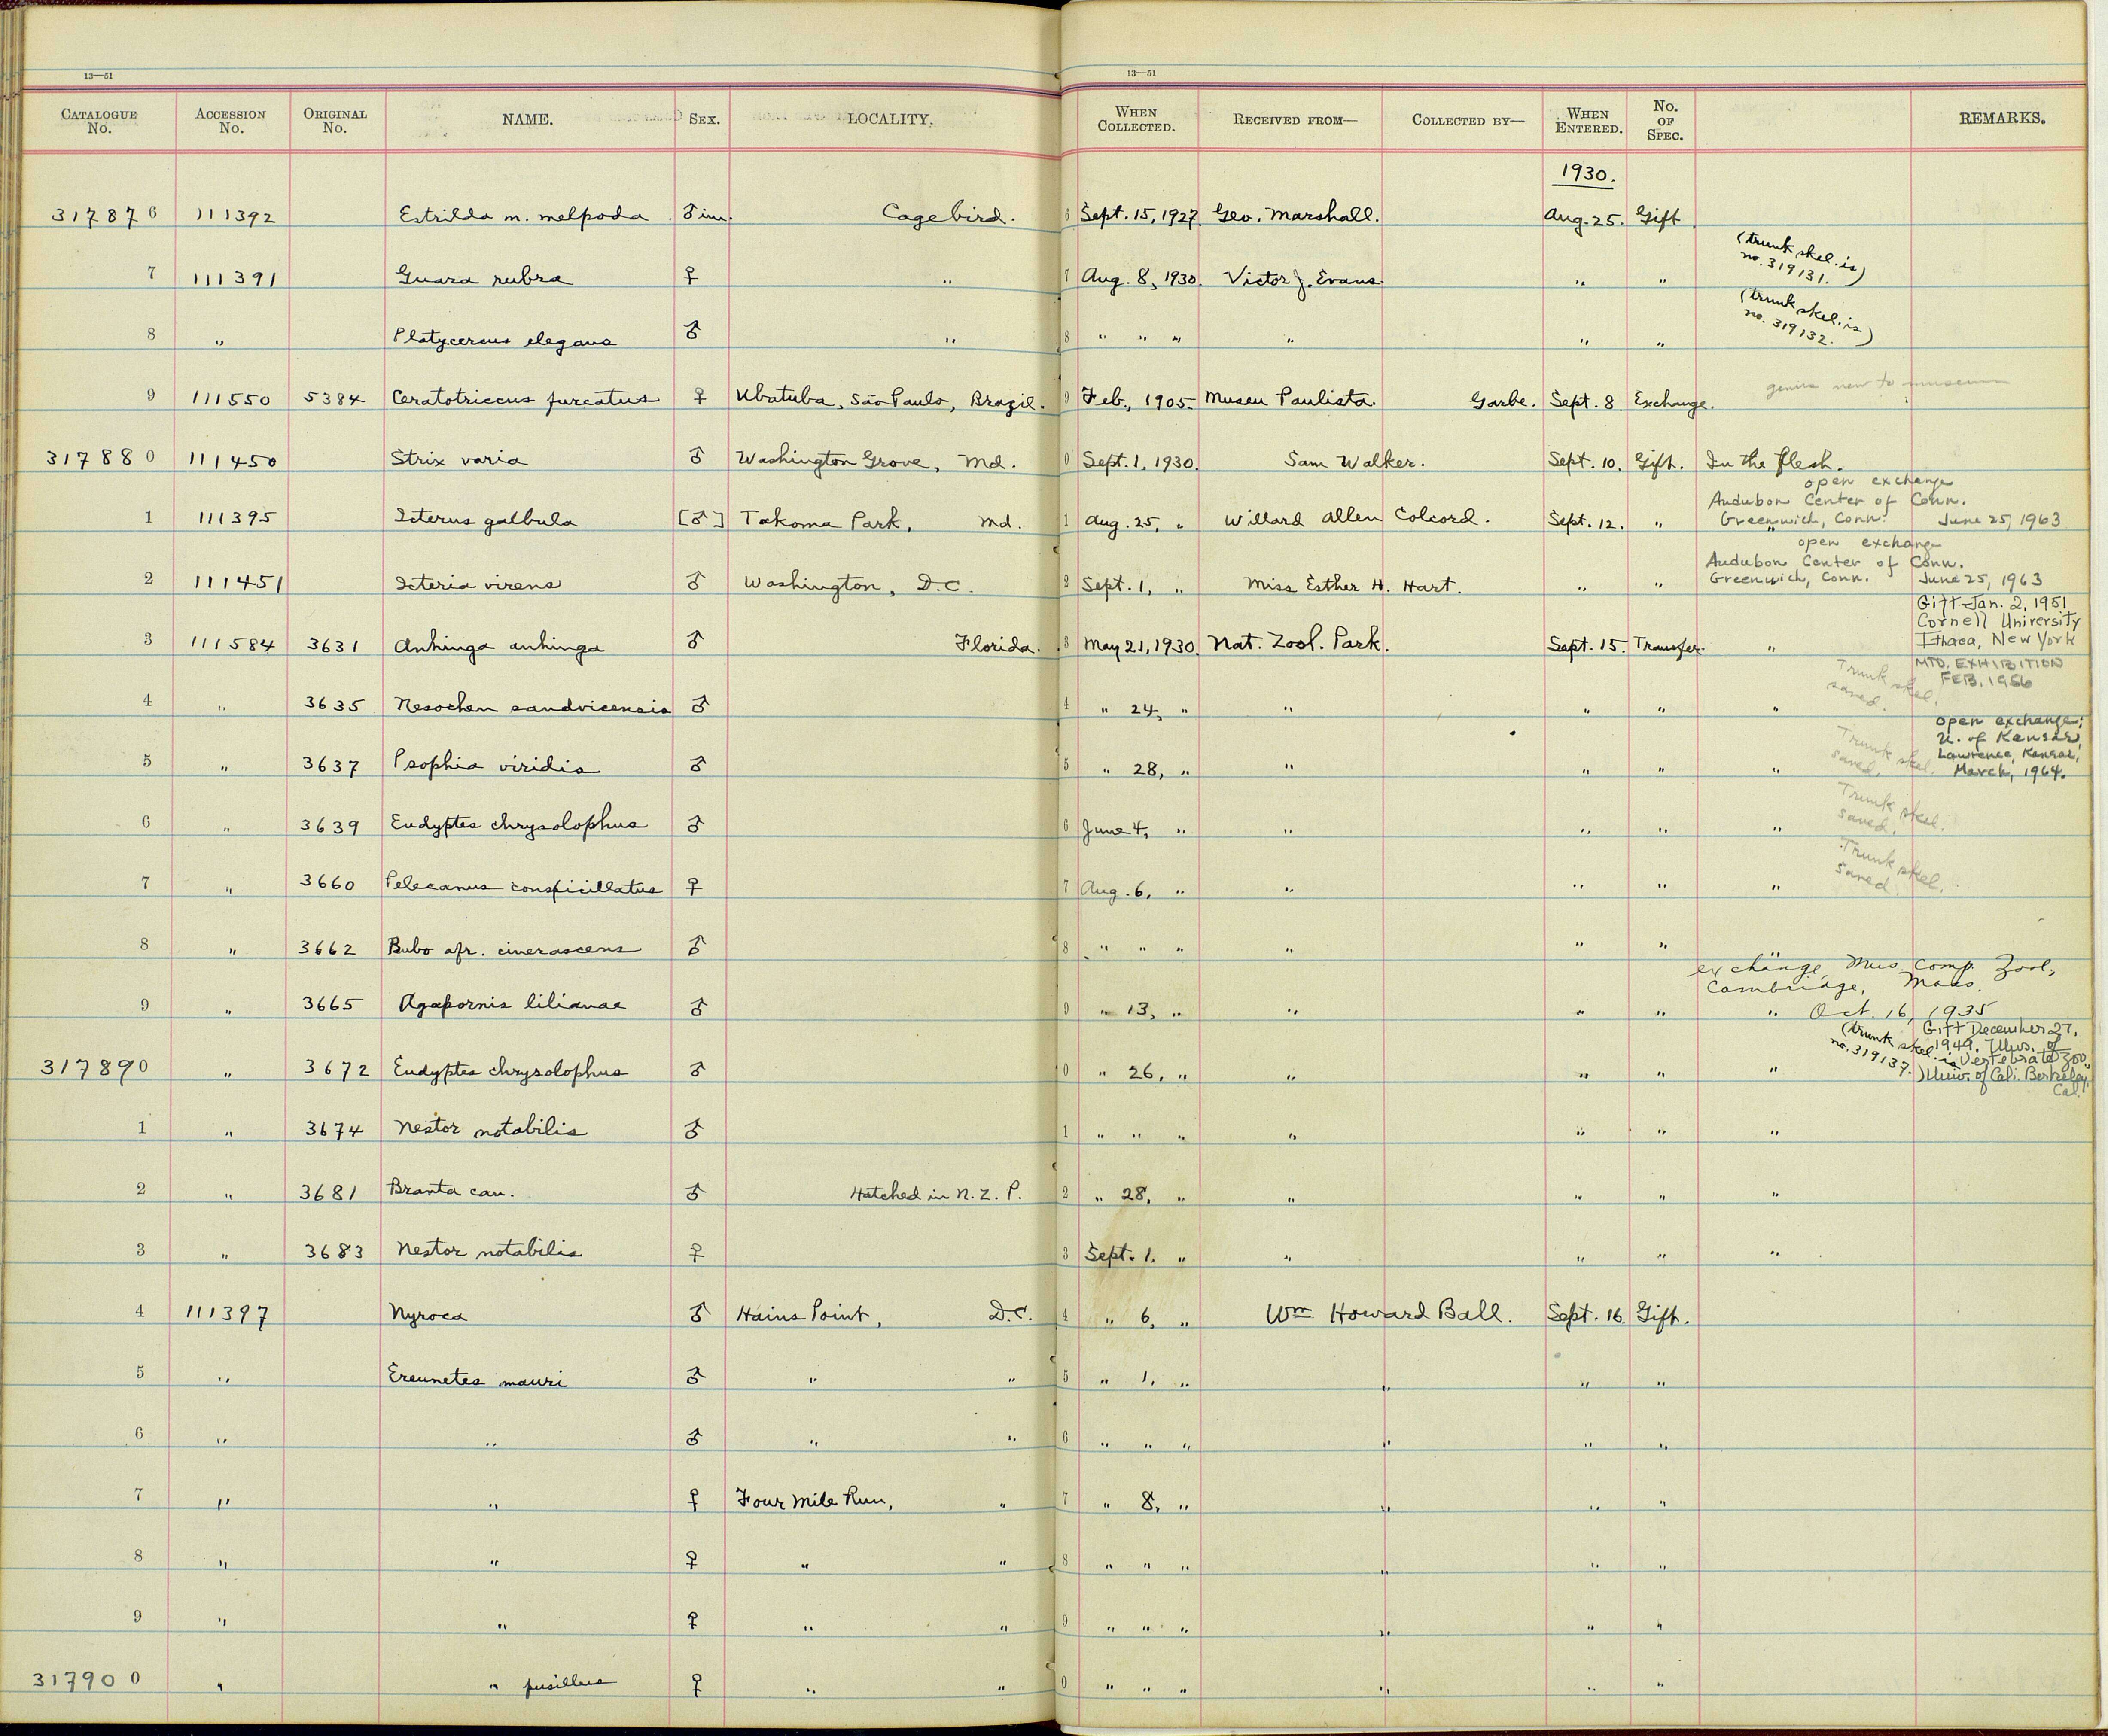 13—51 13—51
CATALOGUE No. ACCESSION No. ORIGINAL No. NAME. SEX. LOCALITY. WHEN COLLECTED. RECEIVED FROM— COLLECTED BY— WHEN ENTERED. No. OF SPEC. REMARKS.
1930.
317876 111392 Estrilda m. melpoda ♂ im. Cage bird. 6 Sept. 15, 1927. Geo. Marshall. Aug. 25. Gift.
7 111391 Guara rubra ♀ " 7 Aug. 8, 1930. Victor J. Evans. " " (trunk skel. is no. 319131.)
8 " Platycercus elegans ♂ " 8 " " " " " " (trunk skel. is no. 319132.)
9 111550 5384 Ceratotriccus furcatus ♀ Ubatuba, São Paulo, Brazil. 9 Feb., 1905. Museu Paulista. Garbe. Sept. 8. Exchange. genus new to museum
317880 111450 Strix varia ♂ Washington Grove, Md. 0 Sept. 1, 1930. Sam Walker. Sept. 10. Gift. In the flesh.
open exchange
Audubon Center of Conn.
1 111395 Icterus galbula [♂] Takoma Park, Md. 1 Aug. 25, " Willard Allen Colcord. Sept. 12. " " Greenwich, Conn. June 25, 1963
open exchange
Audubon Center of Conn.
2 111451 Icteria virens ♂ Washington, D.C. 2 Sept. 1, " Miss Esther H. Hart. " " " Greenwich, Conn. June 25, 1963
Gift-Jan. 2, 1951
Cornell University
3 111584 3631 Anhinga anhinga ♂ Florida. 3 May 21, 1930. Nat. Zool. Park. Sept. 15. Transfer. " Ithaca, New York
MTD. EXHIBITION
FEB. 1956
4 " 3635 Nesochen sandvicensis ♂ 4 " 24, " " " " " Trunk skel. saved.
open exchange;
U. of Kansas,
Lawrence, Kansas,
5 " 3637 Psophia viridis ♂ 5 " 28, " " " " " Trunk skel. saved. March, 1964.
6 " 3639 Eudyptes chrysolophus ♂ 6 June 4, " " " " " Trunk skel. saved.
7 " 3660 Pelecanus conspicillatus ♀ 7 Aug. 6, " " " " " Trunk skel. saved.
8 " 3662 Bubo afr. cinerascens ♂ 8 " " " " " " "
exchange, Mus. Comp. Zool.,
Cambridge, Mass.
9 " 3665 Agapornis lilianae ♂ 9 " 13, " " " " " Oct. 16, 1935
Gift December 27,
1949. Mus. of
Vertebrate Zoo.,
317890 " 3672 Eudyptes chrysolophus ♂ 0 " 26, " " " " " (trunk skel. is no. 319137.) Univ. of Cali. Berkeley,
Cal.
1 " 3674 Nestor notabilis ♂ 1 " " " " " " "
2 " 3681 Branta can. ♂ Hatched in N. Z. P. 2 " 28, " " " " "
3 " 3683 Nestor notabilis ♀ 3 Sept. 1, " " " " "
4 111397 Nyroca ♂ Hains Point, D.C. 4 " 6, " Wm Howard Ball. Sept. 16. Gift.
5 " Ereunetes mauri ♂ " " 5 " 1, " " " "
6 " " ♂ " " 6 " " " " " "
7 " " ♀ Four Mile Run, " 7 " 8, " " " "
8 " " ♀ " " 8 " " " " " "
9 " " ♀ " " 9 " " " " " "
317900 " " pusillus ♀ " " 0 " " " " " "